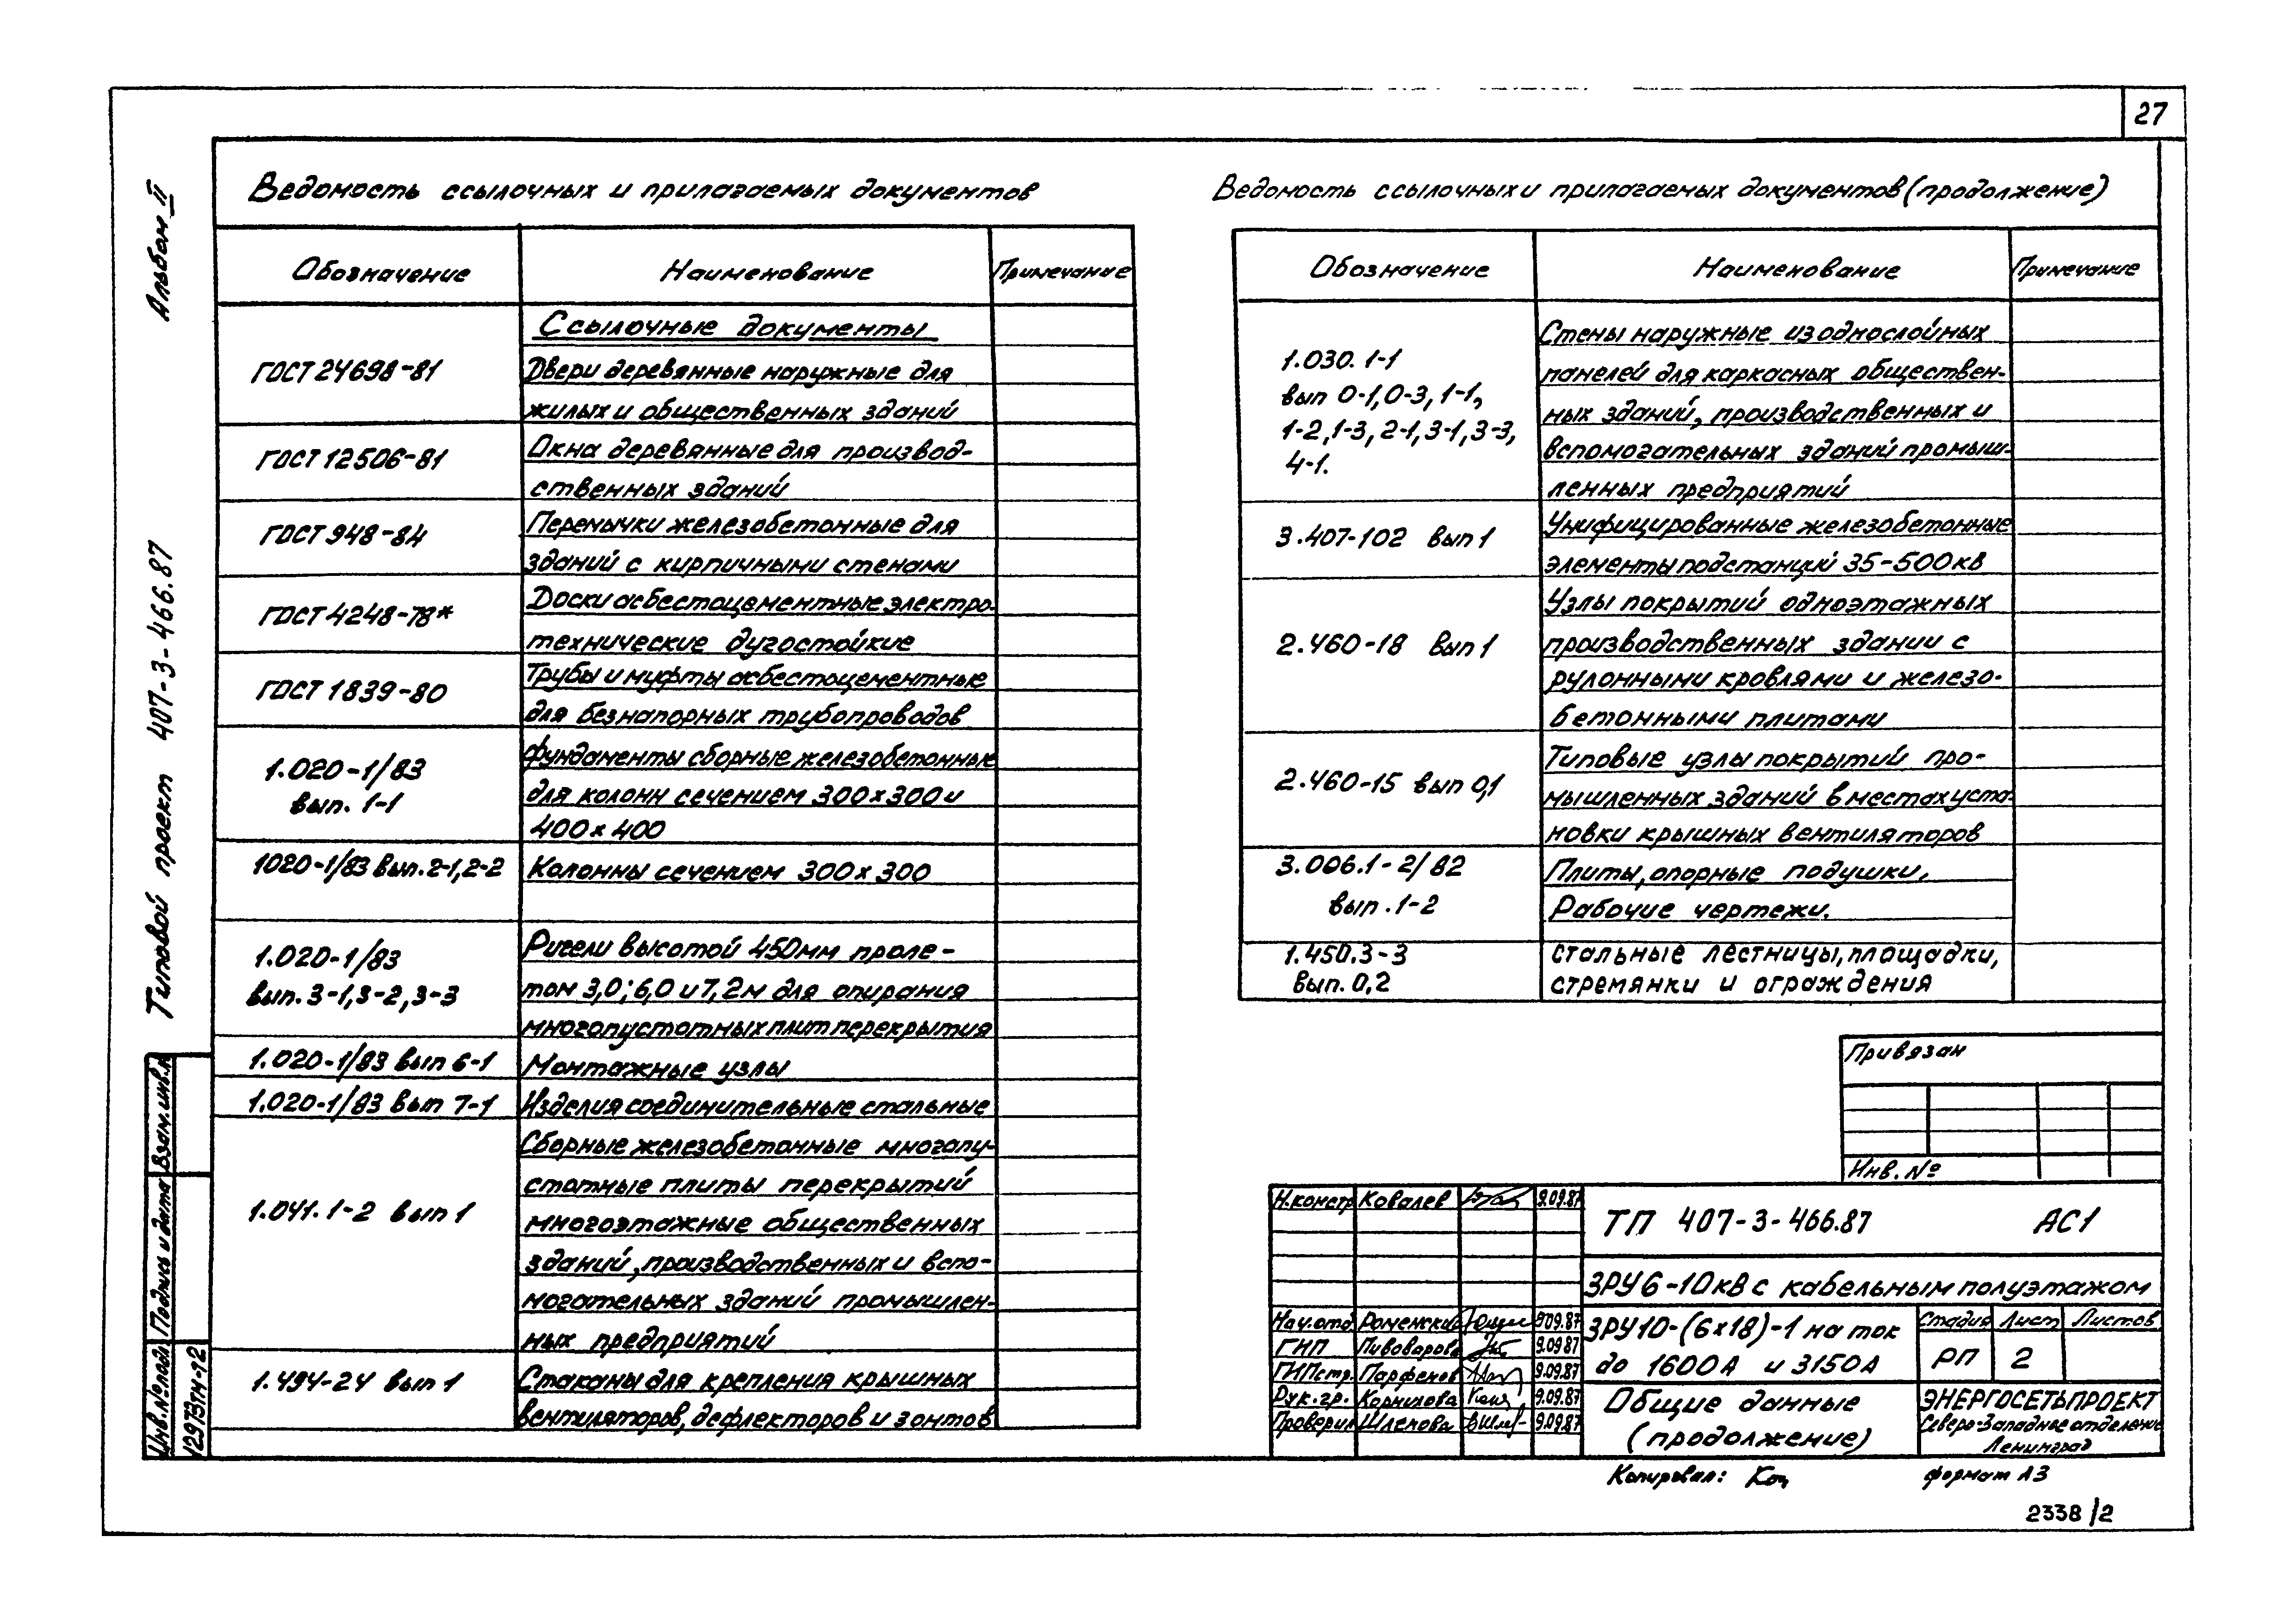 27
Альбом II
Типовой проект 407-3-466.87
Взам.инв.№
Подпись и дата
Инв.№подл.
12973тм-т2
Ведомость ссылочных и прилагаемых документов
Обозначение Наименование Примечание
Ссылочные документы
ГОСТ 24698-81 Двери деревянные наружные для
жилых и общественных зданий
ГОСТ 12506-81 Окна деревянные для производ-
ственных зданий
ГОСТ 948-84 Перемычки железобетонные для
зданий с кирпичными стенами
ГОСТ 4248-78* Доски асбестоцементные электро-
технические дугостойкие
ГОСТ 1839-80 Трубы и муфты асбестоцементные
для безнапорных трубопроводов
1.020-1/83 Фундаменты сборные железобетонные
вып. 1-1 для колонн сечением 300х300 и
400х400
1020-1/83 вып.2-1,2-2 Колонны сечением 300х300
1.020-1/83 Ригели высотой 450мм проле-
вып.3-1,3-2,3-3 том 3,0;6,0 и 7,2м для опирания
многопустотных плит перекрытия
1.020-1/83 вып 6-1 Монтажные узлы
1.020-1/83 вып 7-1 Изделия соединительные стальные
Сборные железобетонные многопу-
стотные плиты перекрытий
1.041.1-2 вып 1 многоэтажные общественных
зданий, производственных и вспо-
могательных зданий промышлен-
ных предприятий
1.494-24 вып 1 Стаканы для крепления крышных
вентиляторов, дефлекторов и зонтов
Ведомость ссылочных и прилагаемых документов (продолжение)
Обозначение Наименование Примечание
Стены наружные из однослойных
1.030.1-1 панелей для каркасных обществен-
вып 0-1,0-3,1-1, ных зданий, производственных и
1-2,1-3,2-1,3-1,3-3, вспомогательных зданий промыш-
4-1. ленных предприятий
3.407-102 вып 1 Унифицированные железобетонные
элементы подстанций 35-500кв
Узлы покрытий одноэтажных
2.460-18 вып 1 производственных здании с
рулонными кровлями и железо-
бетонными плитами
2.460-15 вып 0,1 Типовые узлы покрытий про-
мышленных зданий в местах уста-
новки крышных вентиляторов
3.006.1-2/82 Плиты, опорные подушки.
вып.1-2 Рабочие чертежи.
1.450.3-3 стальные лестницы, площадки,
вып. 0,2 стремянки и ограждения
Привязан
Инв. №
Н.контр. Ковалев 9.09.87
ТП 407-3-466.87 АС1
ЗРУ 6-10кВ с кабельным полуэтажом
Нач.отд. Роменский 9.09.87
ГИП Пивоваров 9.09.87
ГИПстр. Парфенов 9.09.87
Рук.гр. Корнилова 9.09.87
Проверил Шлепова 9.09.87
ЗРУ10-(6х18)-1 на ток
до 1600А и 3150А
Стадия Лист Листов
РП 2
Общие данные
(продолжение)
ЭНЕРГОСЕТЬПРОЕКТ
Северо-Западное отделение
Ленинград
Копировал: формат А3
2338/2